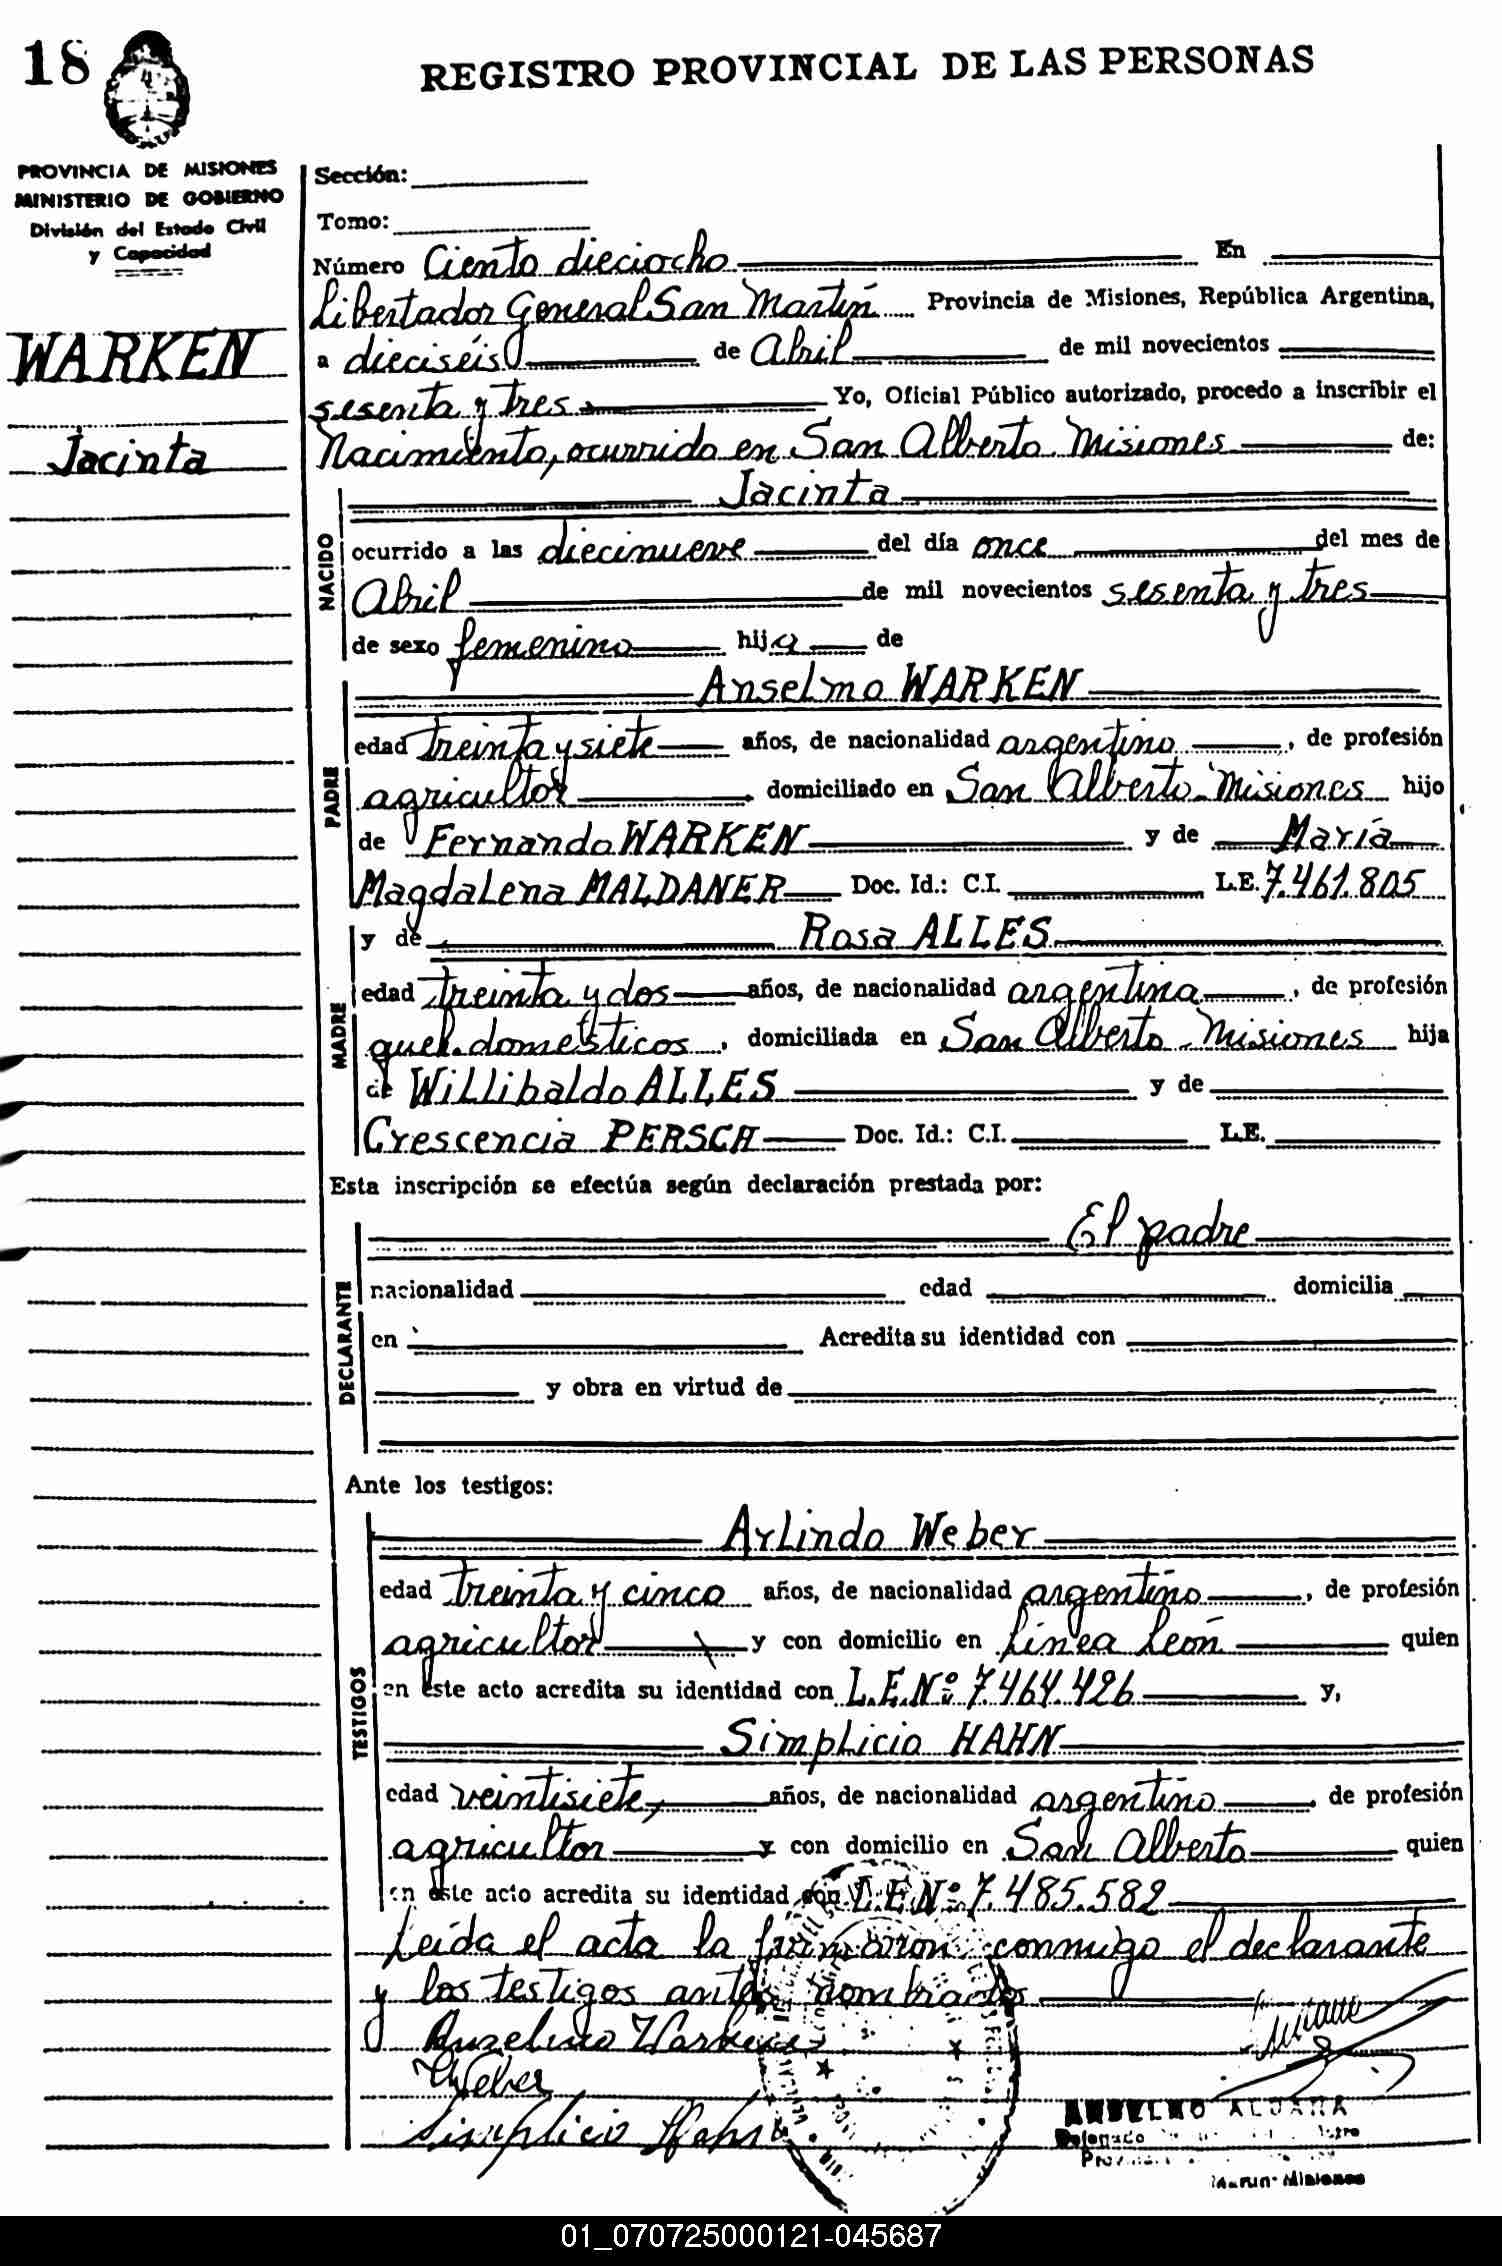 18
REGISTRO PROVINCIAL DE LAS PERSONAS
PROVINCIA DE MISIONES
MINISTERIO DE GOBIERNO
División del Estado Civil
y Capacidad
WARKEN
Jacinta
Sección:
Tomo:
Número Ciento dieciocho En
Libertador General San Martín Provincia de Misiones, República Argentina,
a dieciséis de Abril de mil novecientos
sesenta y tres Yo, Oficial Público autorizado, procedo a inscribir el
Nacimiento, ocurrido en San Alberto Misiones de:
NACIDO
Jacinta
ocurrido a las diecinueve del día once del mes de
Abril de mil novecientos sesenta y tres
de sexo femenino hija de
PADRE
Anselmo WARKEN
edad treinta y siete años, de nacionalidad argentino, de profesión
agricultor domiciliado en San Alberto - Misiones hijo
de Fernando WARKEN y de María
Magdalena MALDANER Doc. Id.: C.I. L.E. 7.461.805
MADRE
y de Rosa ALLES
edad treinta y dos años, de nacionalidad argentina, de profesión
queh. domésticos, domiciliada en San Alberto - Misiones hija
de Willibaldo ALLES y de
Crescencia PERSCH Doc. Id.: C.I. L.E.
Esta inscripción se efectúa según declaración prestada por:
DECLARANTE
El padre
nacionalidad edad domicilia
en Acredita su identidad con
y obra en virtud de
Ante los testigos:
TESTIGOS
Arlindo Weber
edad treinta y cinco años, de nacionalidad argentino, de profesión
agricultor y con domicilio en Línea León quien
en este acto acredita su identidad con L.E.Nº 7.464.426 y,
Simplicio HAHN
edad veintisiete, años, de nacionalidad argentino, de profesión
agricultor y con domicilio en San Alberto quien
en este acto acredita su identidad con L.E.Nº 7.485.582
Leída el acta la firmaron conmigo el declarante
y los testigos antes nombrados
Anzelmo Warken
Weber
Simplicio Hahn
ANSELMO ALDANA
Delegado
Martín - Misiones
01_070725000121-045687